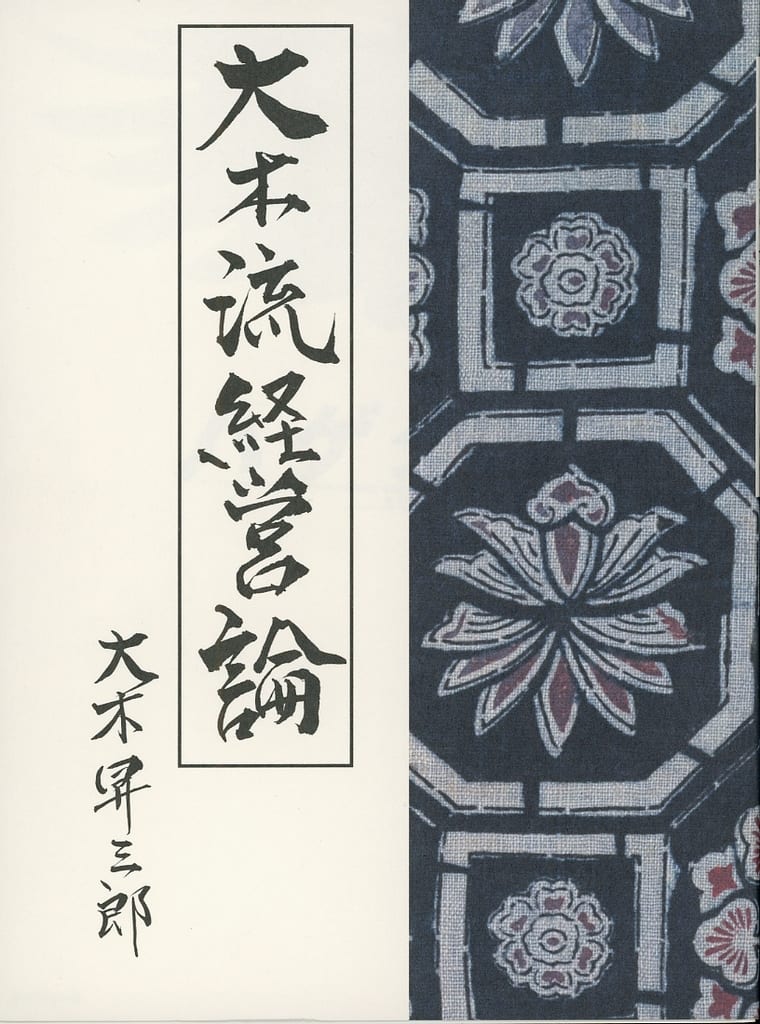 大木流経営論
大木昇三郎